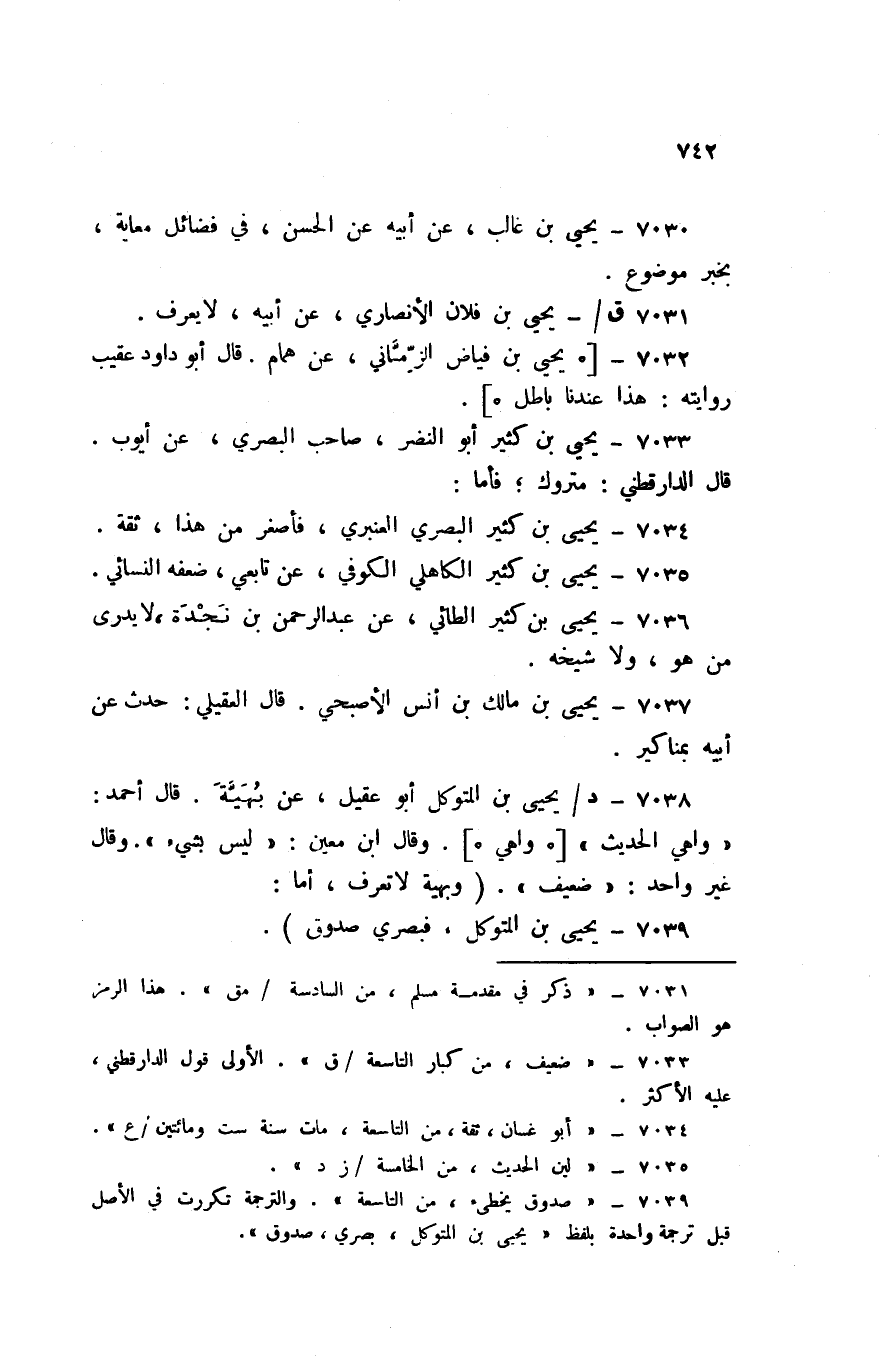 ٧٤٢
٧٠٣٠ – يحيى بن غالب ، عن أبيه عن الحسن ، في فضائل معاية ،
بخبر موضوع .
٧٠٣١ ق/ – يحيى بن فلان الأنصاري ، عن أبيه ، لايعرف .
٧٠٣٢ – [٥ يحيى بن فياض الزِّمَّاني ، عن همام . قال أبو داود عقيب
روايته : هذا عندنا باطل ٥] .
٧٠٣٣ – يحيى بن كثير أبو النضر ، صاحب البصري ، عن أيوب .
قال الدارقطني : متروك ؛ فأما :
٧٠٣٤ – يحيى بن كثير البصري العنبري ، فأصغر من هذا ، ثقة .
٧٠٣٥ – يحيى بن كثير الكاهلي الكوفي ، عن تابعي ، ضعفه النسائي .
٧٠٣٦ – يحيى بن كثير الطائي ، عن عبدالرحمن بن نَجْدَة ،لايدرى
من هو ، ولا شيخه .
٧٠٣٧ – يحيى بن مالك بن أنس الأصبحي . قال العقيلي : حدث عن
أبيه بمناكير .
٧٠٣٨ – د/ يحيى بن المتوكل أبو عقيل ، عن بُهَيَّةَ . قال أحمد :
« واهي الحديث » [٥ واهي ٥] . وقال ابن معين : « ليس بشيء » . وقال
غير واحد : « ضعيف » . ( وبهية لاتعرف ، أما :
٧٠٣٩ – يحيى بن المتوكل ، فبصري صدوق ) .
٧٠٣١ – « ذكر في مقدمة مسلم ، من السادسة / مق » . هذا الرمز
هو الصواب .
٧٠٣٣ – « ضعيف ، من كبار التاسعة /ق » . الأولى قول الدارقطني ،
عليه الأكثر .
٧٠٣٤ – « أبو غسان ، ثقة ، من التاسعة ، مات سنة ست ومائتين /ع » .
٧٠٣٥ – « لين الحديث ، من الخامسة / ز د » .
٧٠٣٩ – « صدوق يخطىء ، من التاسعة » . والترجمة تكررت في الأصل
قبل ترجمة واحدة بلفظ « يحيى بن المتوكل ، بصري ، صدوق ».